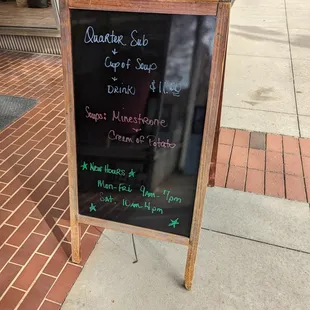 Quarter Sub
+
Cup of Soup
+
Drink
Soups: Minestrone
+
Cream of Potato
New Hours
Mon-Fri: 9am-7pm
Sat: 10am-4pm